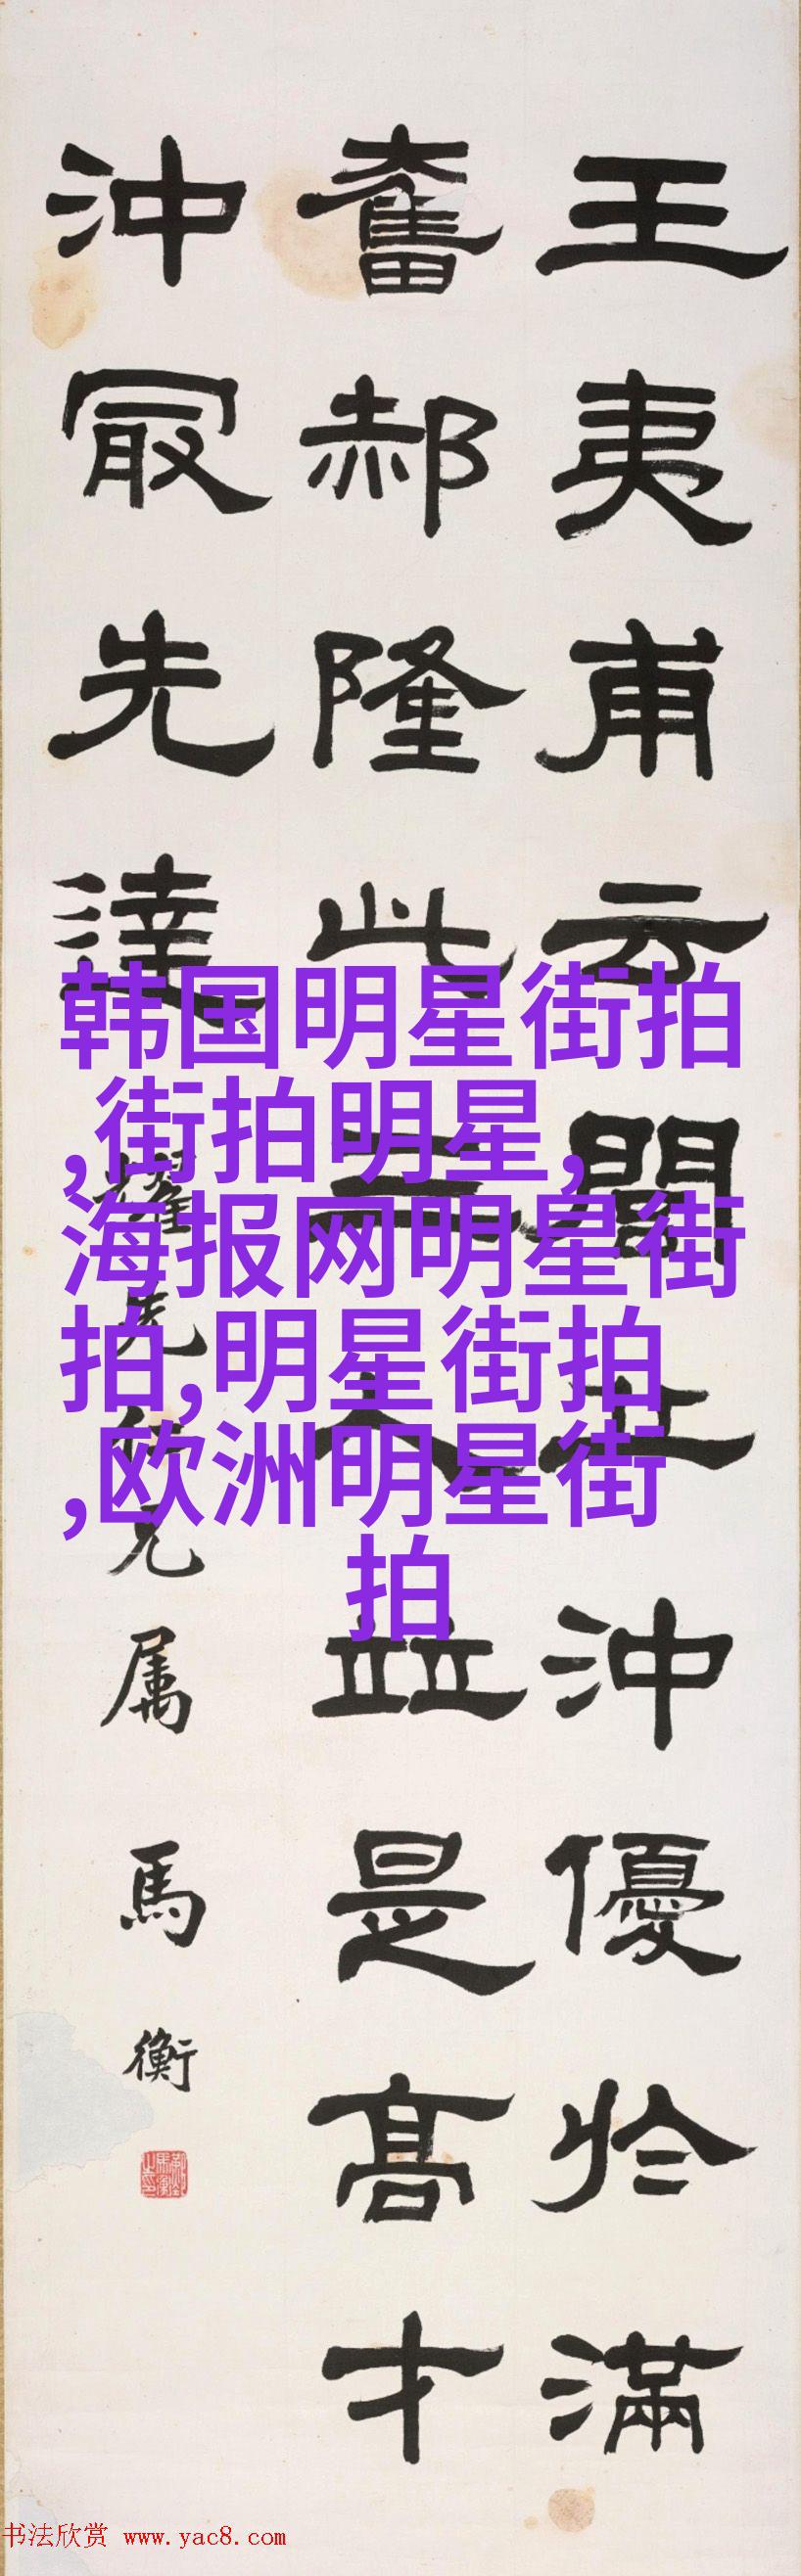 王夷甫云閭丘沖優於滿
奮郝隆此三人並是高才
沖冣先達
先仁兄属馬衡
韩国明星街拍
,街拍明星,
海报网明星街
拍,明星街拍
,欧洲明星街
拍
书法欣赏 www.yac8.com